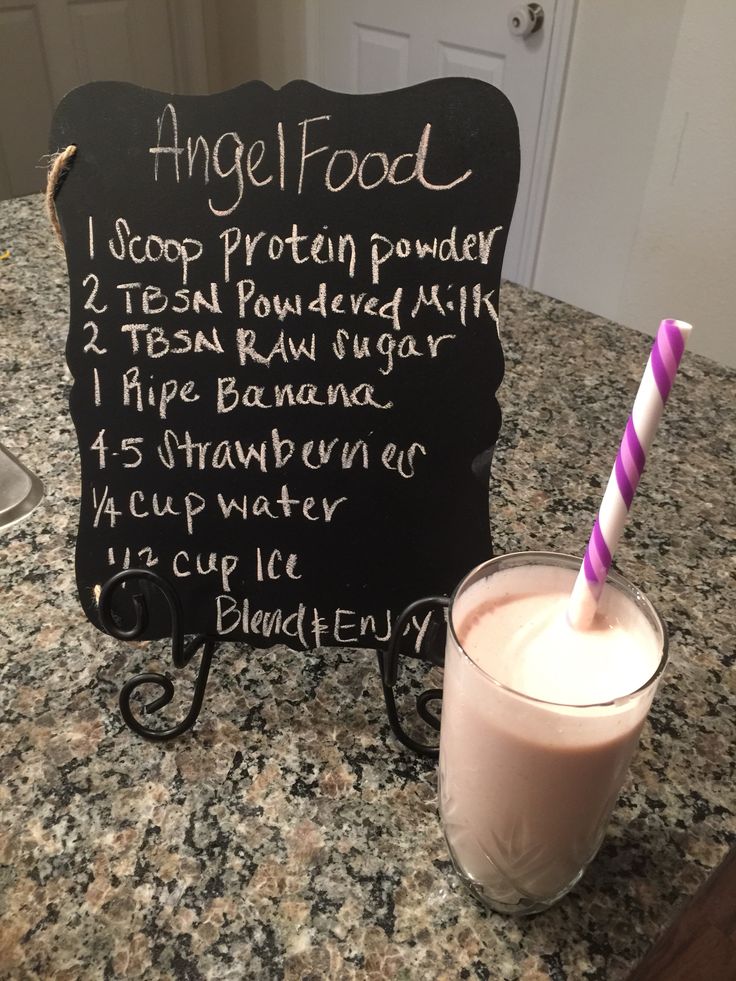 AngelFood
1 Scoop protein powder
2 TBSN Powdered Milk
2 TBSN RAW sugar
1 Ripe Banana
4-5 Strawberries
1/4 cup water
1/2 cup Ice
Blend & Enjoy